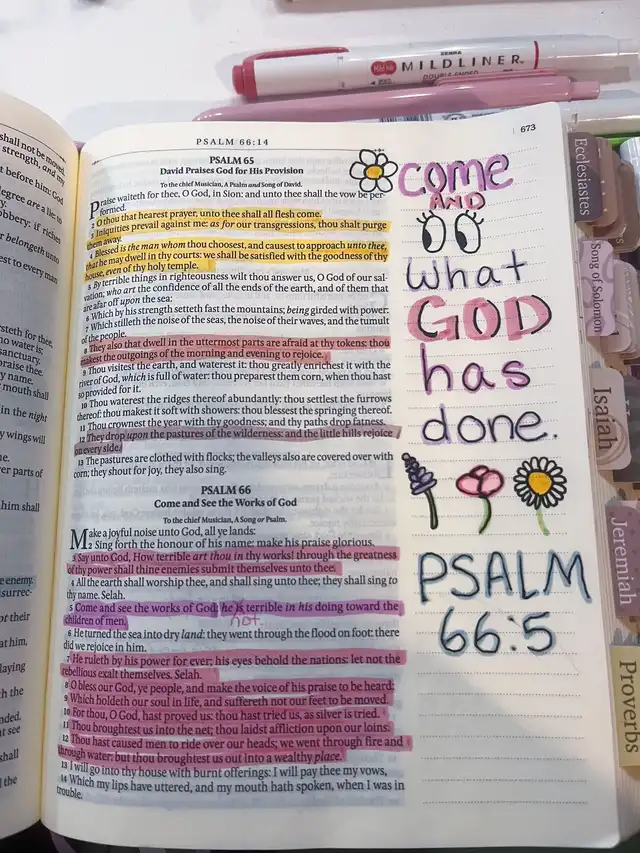 ZEBRA
MILDLINER
DOUBLE ENDED
PSALM 66:14
673
PSALM 65
David Praises God for His Provision
To the chief Musician, A Psalm and Song of David.
Praise waiteth for thee, O God, in Sion: and unto thee shall the vow be per-
formed.
2 O thou that hearest prayer, unto thee shall all flesh come.
3 Iniquities prevail against me: as for our transgressions, thou shalt purge
them away.
4 Blessed is the man whom thou choosest, and causest to approach unto thee,
that he may dwell in thy courts: we shall be satisfied with the goodness of thy
house, even of thy holy temple.
5 By terrible things in righteousness wilt thou answer us, O God of our sal-
vation; who art the confidence of all the ends of the earth, and of them that
are afar off upon the sea:
6 Which by his strength setteth fast the mountains; being girded with power:
7 Which stilleth the noise of the seas, the noise of their waves, and the tumult
of the people.
8 They also that dwell in the uttermost parts are afraid at thy tokens: thou
makest the outgoings of the morning and evening to rejoice.
9 Thou visitest the earth, and waterest it: thou greatly enrichest it with the
river of God, which is full of water: thou preparest them corn, when thou hast
so provided for it.
10 Thou waterest the ridges thereof abundantly: thou settlest the furrows
thereof: thou makest it soft with showers: thou blessest the springing thereof.
11 Thou crownest the year with thy goodness; and thy paths drop fatness.
12 They drop upon the pastures of the wilderness: and the little hills rejoice
on every side.
13 The pastures are clothed with flocks; the valleys also are covered over with
corn; they shout for joy, they also sing.
PSALM 66
Come and See the Works of God
To the chief Musician, A Song or Psalm.
Make a joyful noise unto God, all ye lands:
2 Sing forth the honour of his name: make his praise glorious.
3 Say unto God, How terrible art thou in thy works! through the greatness
of thy power shall thine enemies submit themselves unto thee.
4 All the earth shall worship thee, and shall sing unto thee; they shall sing to
thy name. Selah.
5 Come and see the works of God: he is terrible in his doing toward the
children of men.
not
6 He turned the sea into dry land: they went through the flood on foot: there
did we rejoice in him.
7 He ruleth by his power for ever; his eyes behold the nations: let not the
rebellious exalt themselves. Selah.
8 O bless our God, ye people, and make the voice of his praise to be heard:
9 Which holdeth our soul in life, and suffereth not our feet to be moved.
10 For thou, O God, hast proved us: thou hast tried us, as silver is tried.
11 Thou broughtest us into the net; thou laidst affliction upon our loins.
12 Thou hast caused men to ride over our heads; we went through fire and
through water: but thou broughtest us out into a wealthy place.
13 I will go into thy house with burnt offerings: I will pay thee my vows,
14 Which my lips have uttered, and my mouth hath spoken, when I was in
trouble.
come
AND
what
GOD
has
done.
PSALM
66:5
Ecclesiastes
Song of Solomon
Isaiah
Jeremiah
Proverbs